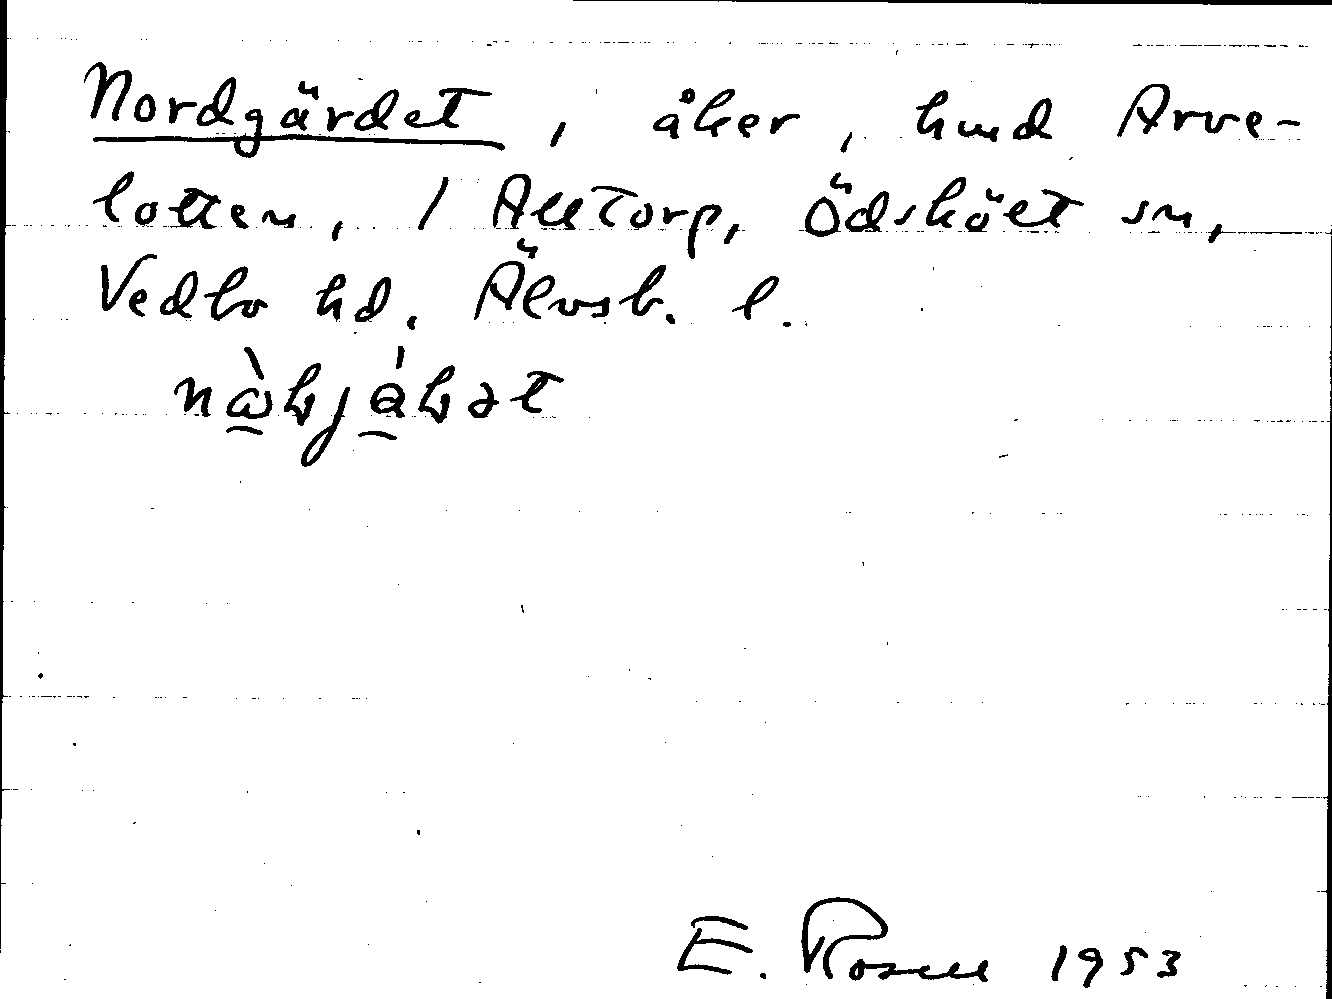 Nordgärdet, åker, hmd Arve-
lotten, 1 Alltorp, Ödsköet sn,
Vedbo hd. Älvsb. l.
E. Rosell 1953